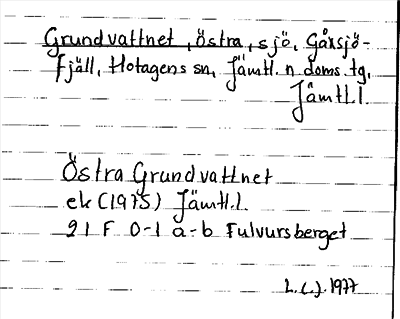 Grundvattnet, Östra, sjö, Gåxsjö-
fjäll, Hotagens sn, Jämtl. n. doms. tg,
Jämtl.l.
Östra Grundvattnet
ek (1975) Jämtl.l.
21 F 0-1 a-b Fulvursberget
1977